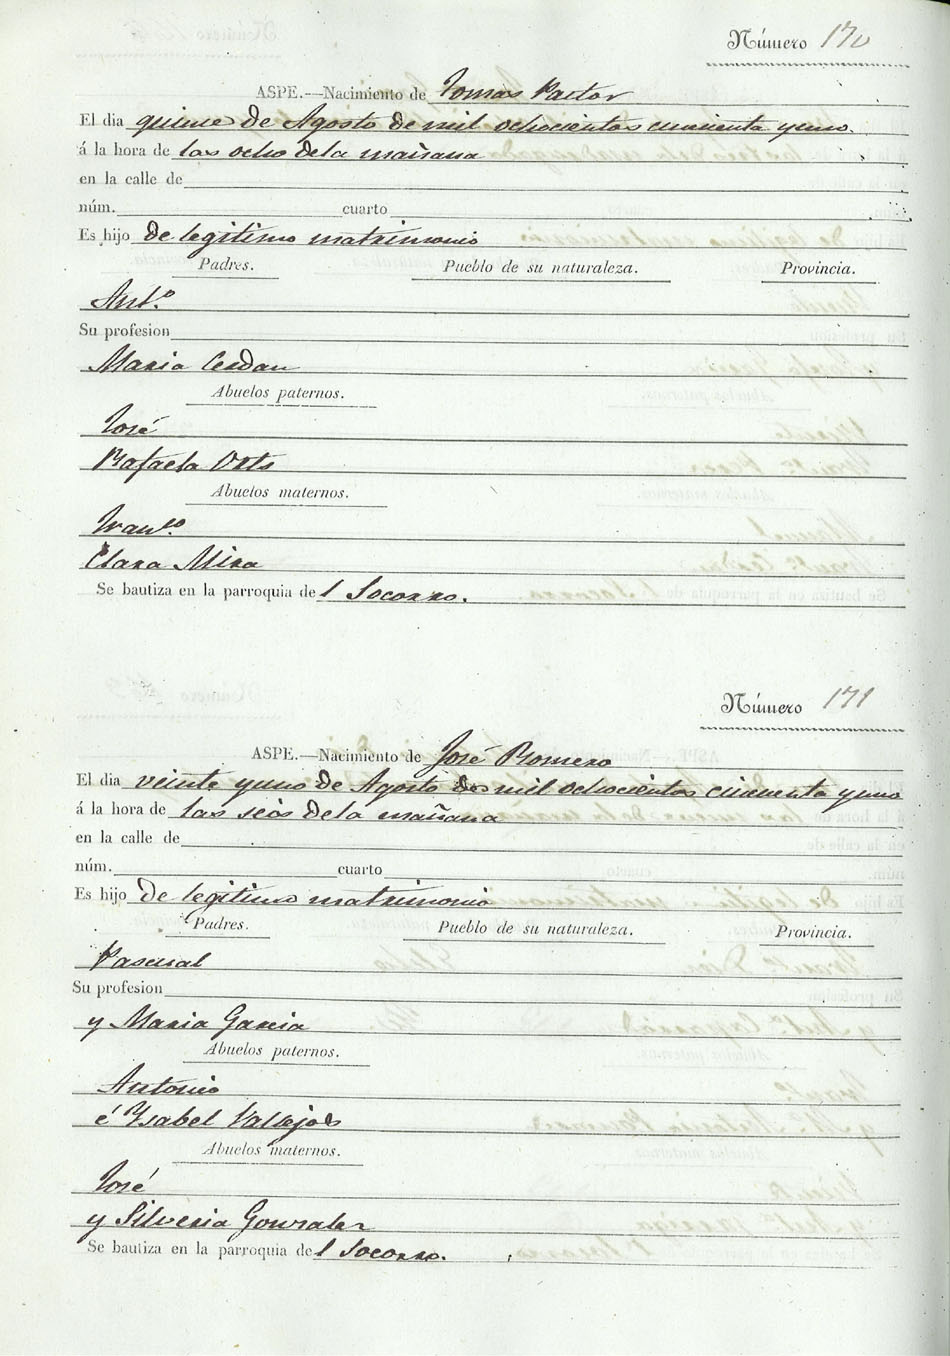 Número 170
ASPE.—Nacimiento de Tomas Pastor
El dia quince de Agosto de mil ochocientos cincuenta y uno.
á la hora de las ocho de la mañana
en la calle de
núm. cuarto
Es hijo de legitimo matrimonio
Padres. Pueblo de su naturaleza. Provincia.
Antº
Su profesion
Maria Cerdan
Abuelos paternos.
José
Rafaela Orts
Abuelos maternos.
Franco.
Clara Mira
Se bautiza en la parroquia del Socorro.
Número 171
ASPE.—Nacimiento de José Romero
El dia veinte y uno de Agosto de mil ochocientos cincuenta y uno
á la hora de las seis de la mañana
en la calle de
núm. cuarto
Es hijo de legitimo matrimonio
Padres. Pueblo de su naturaleza. Provincia.
Pascual
Su profesion
y Maria Garcia
Abuelos paternos.
Antonio
é Ysabel Vallejos
Abuelos maternos.
José
y Silveria Gonzalez
Se bautiza en la parroquia del Socorro.